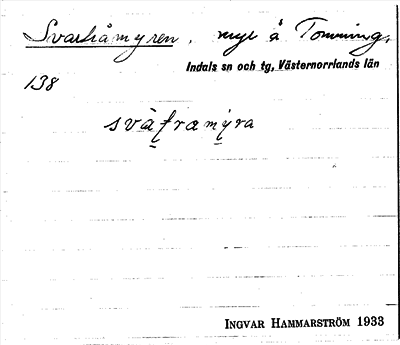 Svartåmyren, myr å Tomming,
Indals sn och tg, Västernorrlands län
138
INGVAR HAMMARSTRÖM 1933